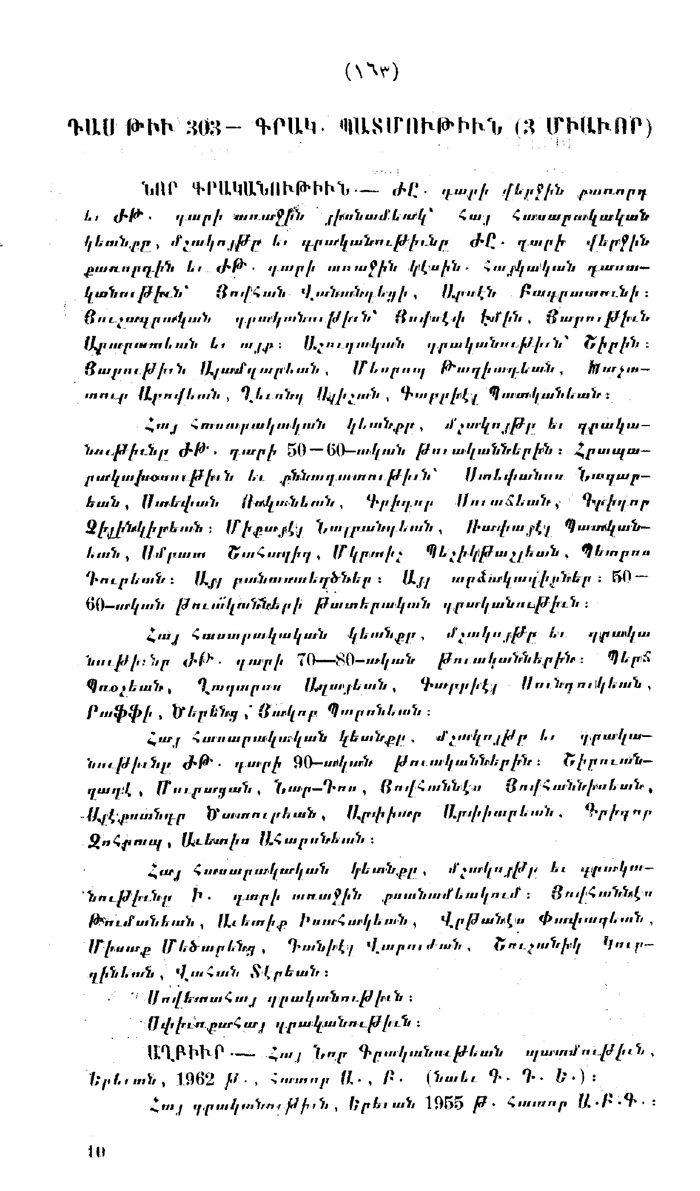 (١٦٣)
ԴԱՍ ԹԻՒ 303 — ԳՐԱԿ. ՊԱՏՄՈՒԹԻՒՆ (3 ՄԻԱՒՈՐ)
ՆՈՐ ԳՐԱԿԱՆՈՒԹԻՒՆ.— ԺԸ. դարի վերջին քառորդ
եւ ԺԹ. դարի առաջին յիսնամեակ՝ Հայ Հասարակական
կեանքը, մշակոյթը եւ գրականութիւնը ԺԸ. դարի վերջին
քառորդին եւ ԺԹ. դարի առաջին կէսին. Հայկական դասա—
կանութիւն՝ Յովհան Վանանդեցի, Արսէն Բագրատունի։
Յուշագրական գրականութիւն՝ Յովսէփ Էմին, Յարութիւն
Արարատեան եւ այլք։ Աշուղական գրականութիւն՝ Շիրին։
Յարութիւն Ալամդարեան, Մեսրոպ Թաղիադեան, Խաչա—
տուր Աբովեան, Ղեւոնդ Ալիշան, Գաբրիէլ Պատկանեան։
Հայ Հասարակական կեանքը, մշակոյթը եւ գրակա—
նութիւնը ԺԹ. դարի 50—60—ական թուականներին։ Հրապա—
րակախօսութիւն եւ քննադատութիւն՝ Ստեփանոս Նազար—
եան, Ստեփան Ոսկանեան, Գրիգոր Մուաճեան, Գրիգոր
Չիլինկիրեան։ Միքայէլ Նալբանդեան, Ռափայէլ Պատկան—
եան, Սմբատ Շահազիզ, Մկրտիչ Պեշիկթաշլեան, Պետրոս
Դուրեան։ Այլ բանաստեղծներ։ Այլ արձակագիրներ։ 50—
60—ական թուականների թատերական գրականութիւն։
Հայ Հասարակական կեանքը, մշակոյթը եւ գրակա
նութիւնը ԺԹ. դարի 70—80—ական թուականներին։ Պերճ
Պռօշեան, Ղազարոս Աղայեան, Գաբրիէլ Սունդուկեան,
Րաֆֆի, Ծերենց, Յակոբ Պարոնեան։
Հայ Հասարակական կեանքը, մշակոյթը եւ գրակա—
նութիւնը ԺԹ. դարի 90—ական թուականներին։ Շիրուան—
զադէ, Մուրացան, Նար—Դոս, Յովհաննէս Յովհաննիսեան,
Ալէքսանդր Ծատուրեան, Արփիար Արփիարեան, Գրիգոր
Զոհրապ, Աւետիս Ահարոնեան։
Հայ Հասարակական կեանքը, մշակոյթը եւ գրակա—
նութիւնը Ի. դարի առաջին քսանամեակում։ Յովհաննէս
Թումանեան, Աւետիք Իսահակեան, Վրթանէս Փափազեան,
Միսաք Մեծարենց, Դանիէլ Վարուժան, Շուշանիկ Կուր—
ղինեան, Վահան Տէրեան։
Սովետահայ գրականութիւն։
Սփիւռքահայ գրականութիւն։
ԱՂԲԻՒՐ.— Հայ Նոր Գրականութեան պատմութիւն,
Երեւան, 1962 թ., Հատոր Ա., Բ. (նաեւ Գ. Դ. Ե.)։
Հայ գրականութիւն, Երեւան 1955 թ. Հատոր Ա.Բ.Գ.։
10